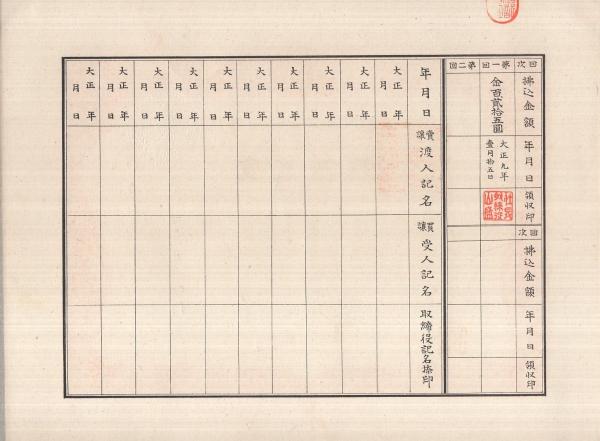 回次
拂込金額
年月日
領収印
第一回
金百貳拾五圓
大正九年
壹月拾五日
第二回
回次
拂込金額
年月日
領収印
年月日
賣讓渡人記名
買讓受人記名
取締役記名捺印
大正 年
月 日
大正 年
月 日
大正 年
月 日
大正 年
月 日
大正 年
月 日
大正 年
月 日
大正 年
月 日
大正 年
月 日
大正 年
月 日
大正 年
月 日